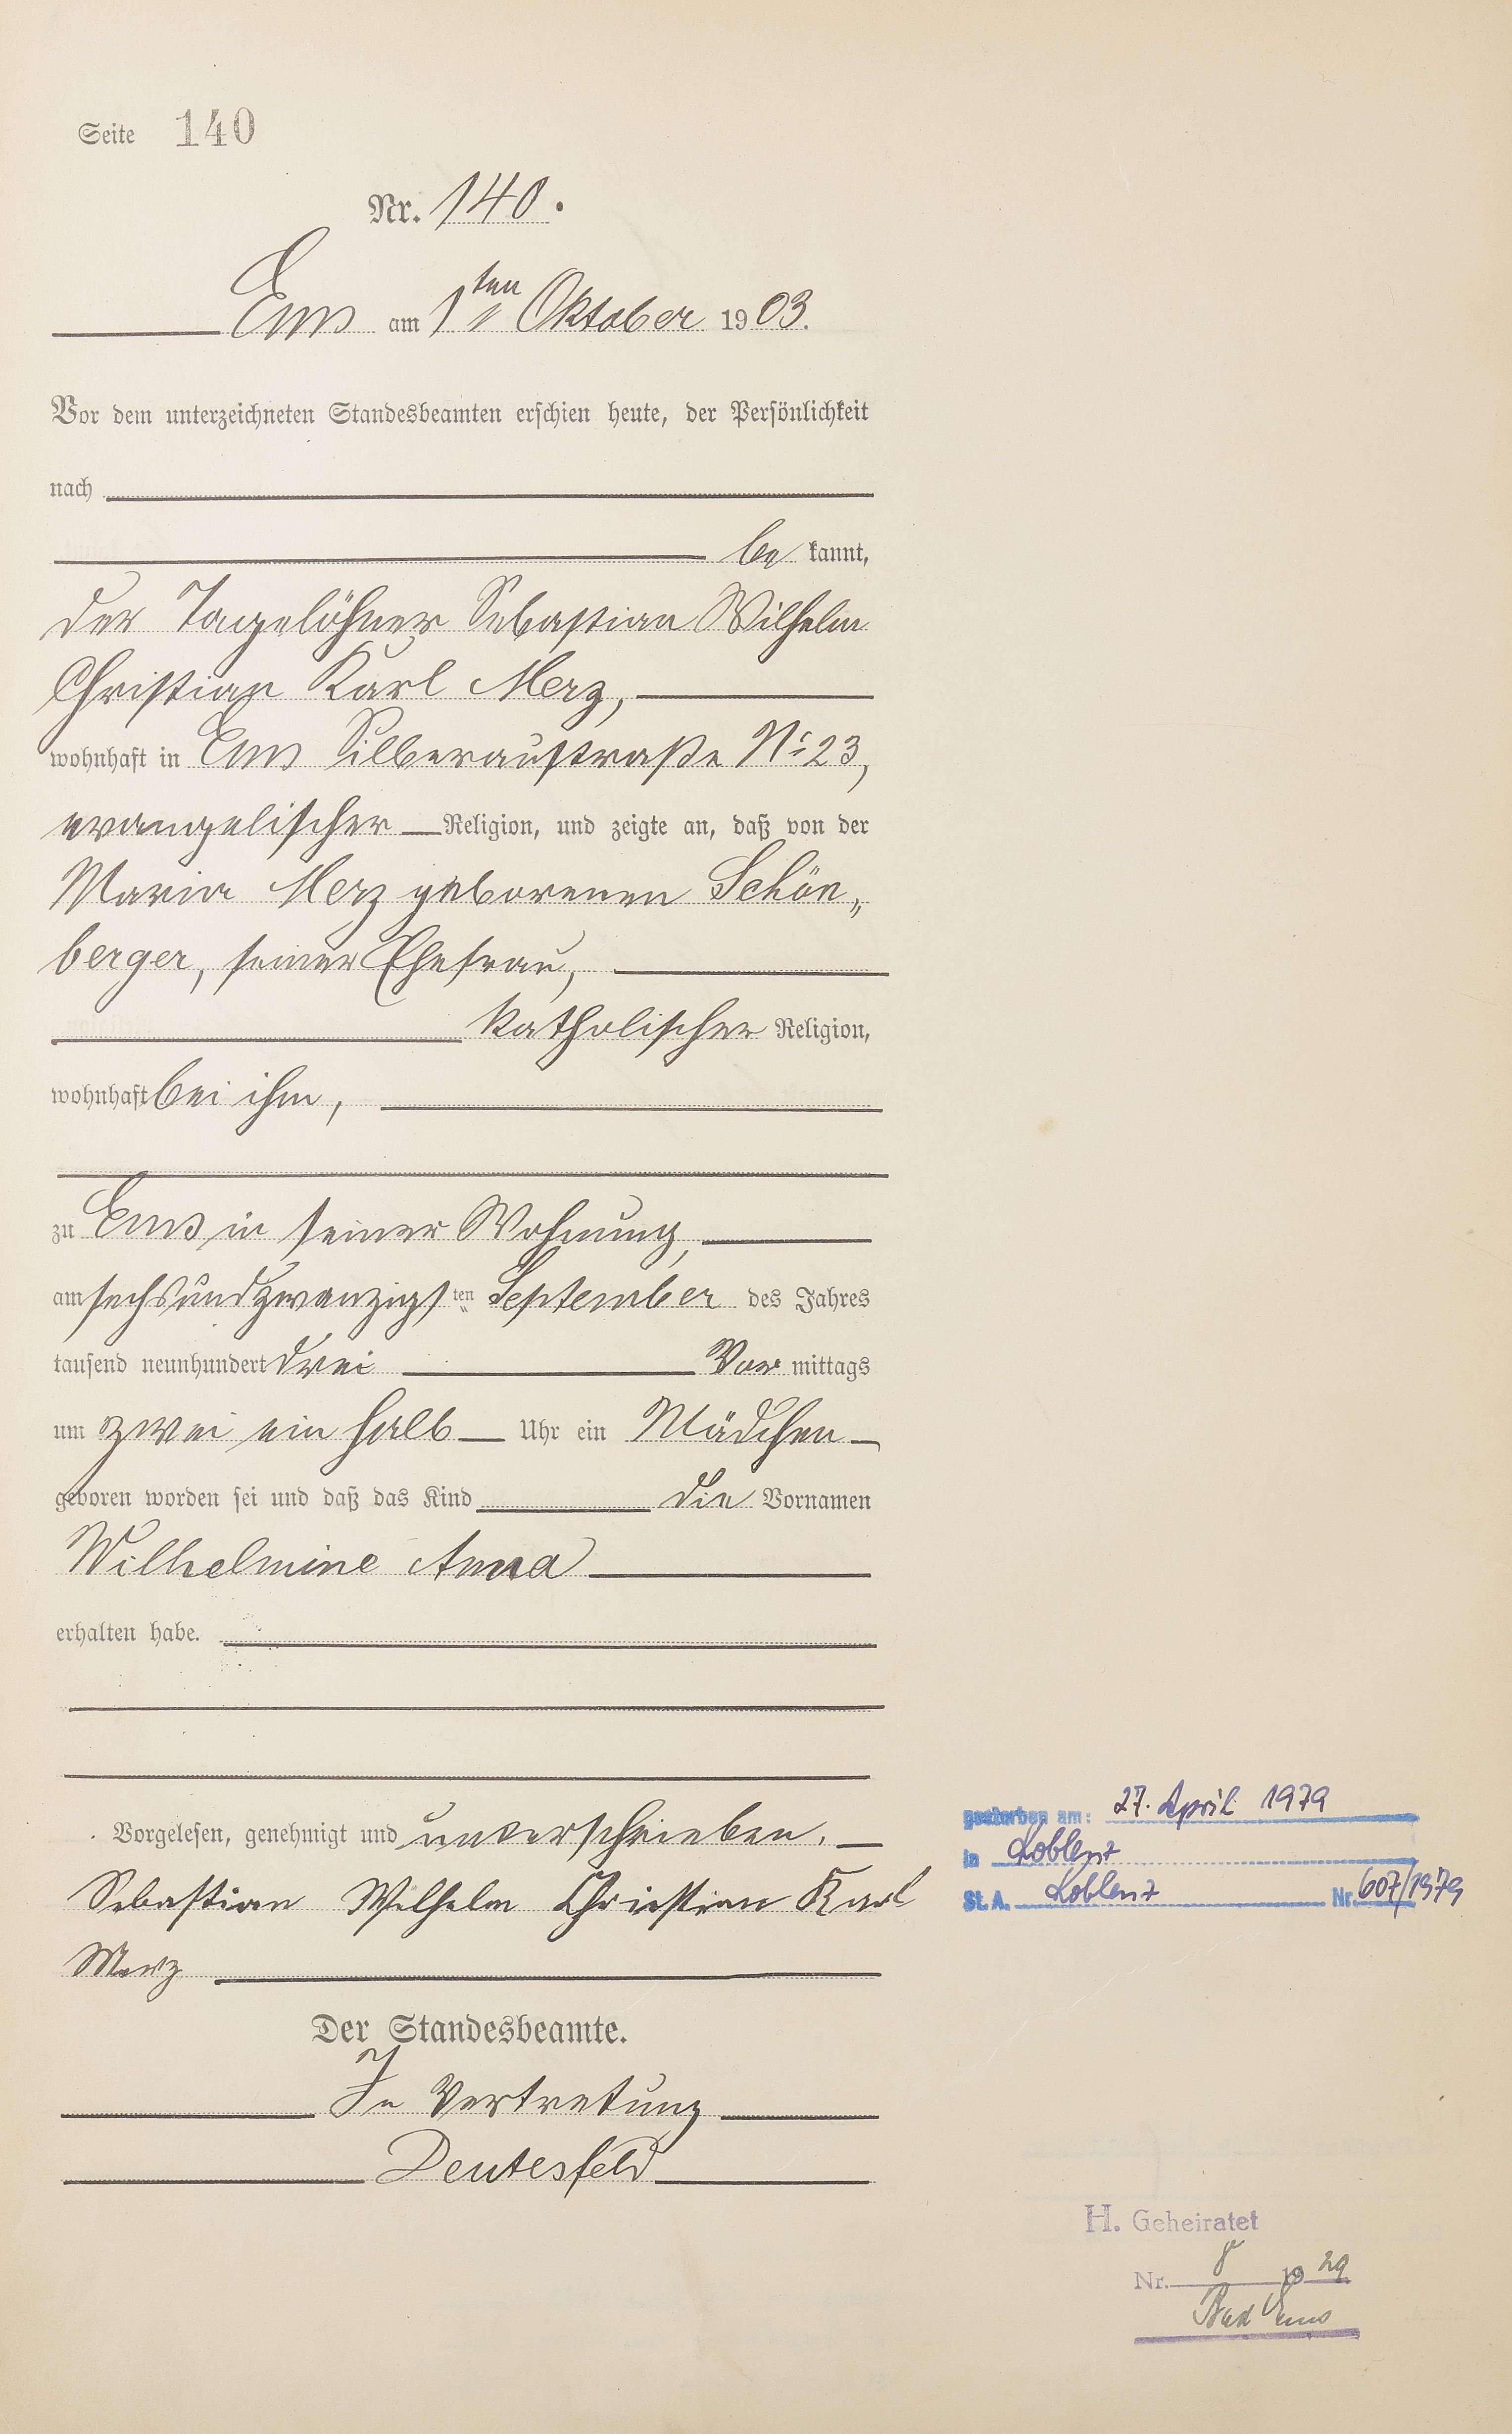 Seite 140
Nr. 140.
Ems am 1ten Oktober 1903.
Vor dem unterzeichneten Standesbeamten erschien heute, der Persönlichkeit
nach
be kannt,
der Tagelöhner Sebastian Wilhelm
Christian Karl Merz,
wohnhaft in Ems Silberaustraße No 23,
evangelischer Religion, und zeigte an, daß von der
Maria Merz geborenen Schön„
berger, seiner Ehefrau,
katholischer Religion,
wohnhaft bei ihm,
zu Ems in seiner Wohnung,
am sechsundzwanzigsten September des Jahres
tausend neunhundert drei Vor mittags
um zwei ein halb Uhr ein Mädchen
geboren worden sei und daß das Kind die Vornamen
Wilhelmine Anna
erhalten habe.
Vorgelesen, genehmigt und unterschrieben.
Sebastian Wilhelm Christian Karl
Merz
Der Standesbeamte.
In Vertretung
Deutesfeld
gestorben am: 27. April 1979
in Koblenz
St. A. Koblenz Nr. 607/1979
H. Geheiratet
Nr. 8 1929
Bad Ems